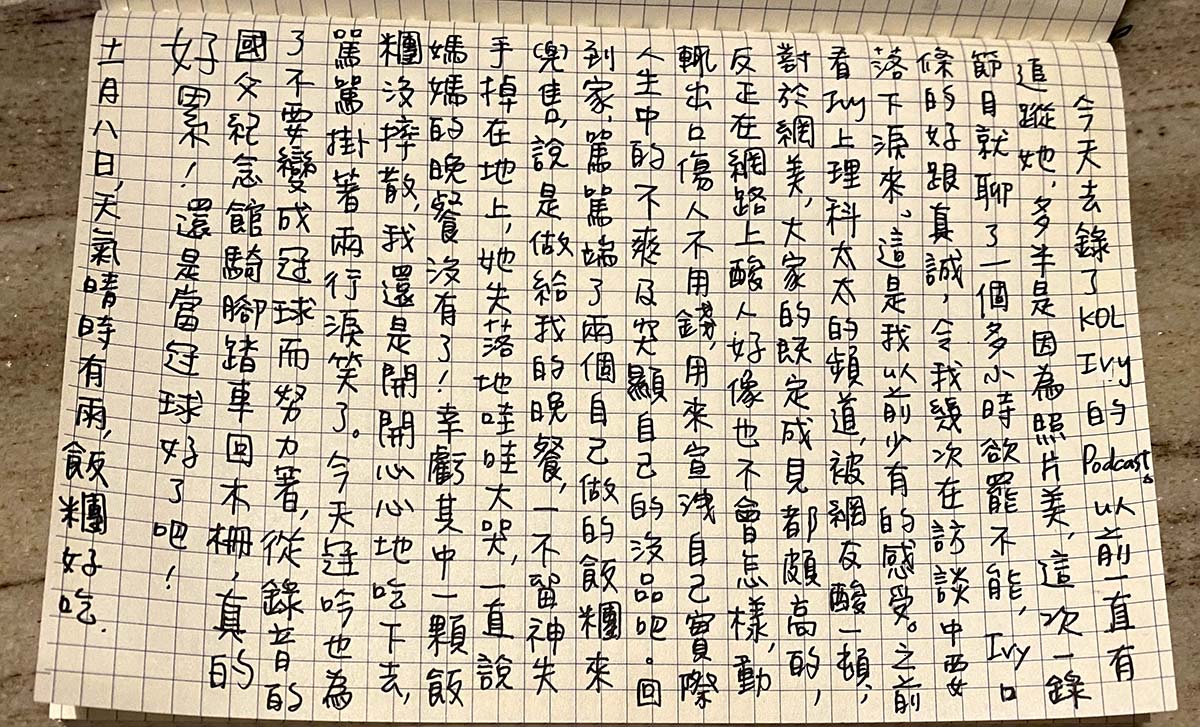 今天去錄了KOL Ivy的Podcast。以前一直有
追蹤她，多半是因為照片美，這次一錄
節目就聊了一個多小時欲罷不能，Ivy口
條的好跟真誠，令我幾次在訪談中要
落下淚來。這是我以前少有的感受。之前
看Ivy上理科太太的頻道，被網友酸一頓，
對於網美，大家的既定成見都頗高的，
反正在網路上酸人好像也不會怎樣，動
輒出口傷人不用錢，用來宣洩自己實際
人生中的不爽及突顯自己的沒品吧。回
到家，駡駡端了兩個自己做的飯糰來
(兜)售，說是做給我的晚餐，一不留神失
手掉在地上，她失落地哇哇大哭，一直說
媽媽的晚餐沒有了！幸虧其中一顆飯
糰沒摔散，我還是開開心心地吃下去，
駡駡掛著兩行淚笑了。今天冠吟也為
了不要變成冠球而努力著，從錄音的
國父紀念館騎腳踏車回木柵，真的
好累！還是當冠球好了吧！
十一月八日，天氣晴時有雨，飯糰好吃.